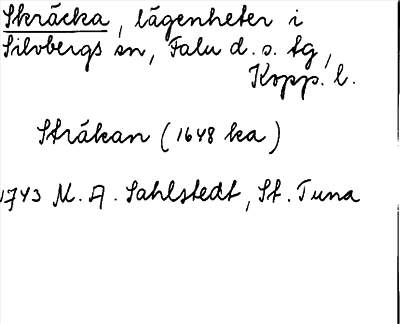 Skräcka, lägenheter i
Silvbergs sn, Falu d. s. tg,
Kopp. l.
Stråkan (1648 ka)
1743 M. A. Sahlstedt, St. Tuna